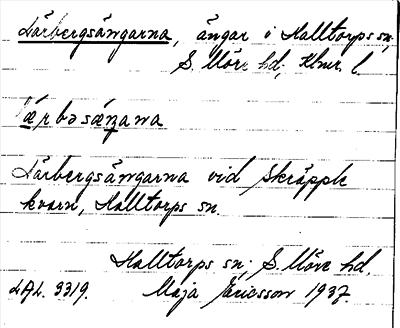 Lärbergsängarna, ängar i Halltorps sn,
S. Möre hd, Klmr. l
lærbəsæŋana
Lärbergsängarna vid Skräpple
kvarn, Halltorps sn.
Halltorps sn, S. Möre hd.
LAL. 3319. Maja Ericsson 1937.